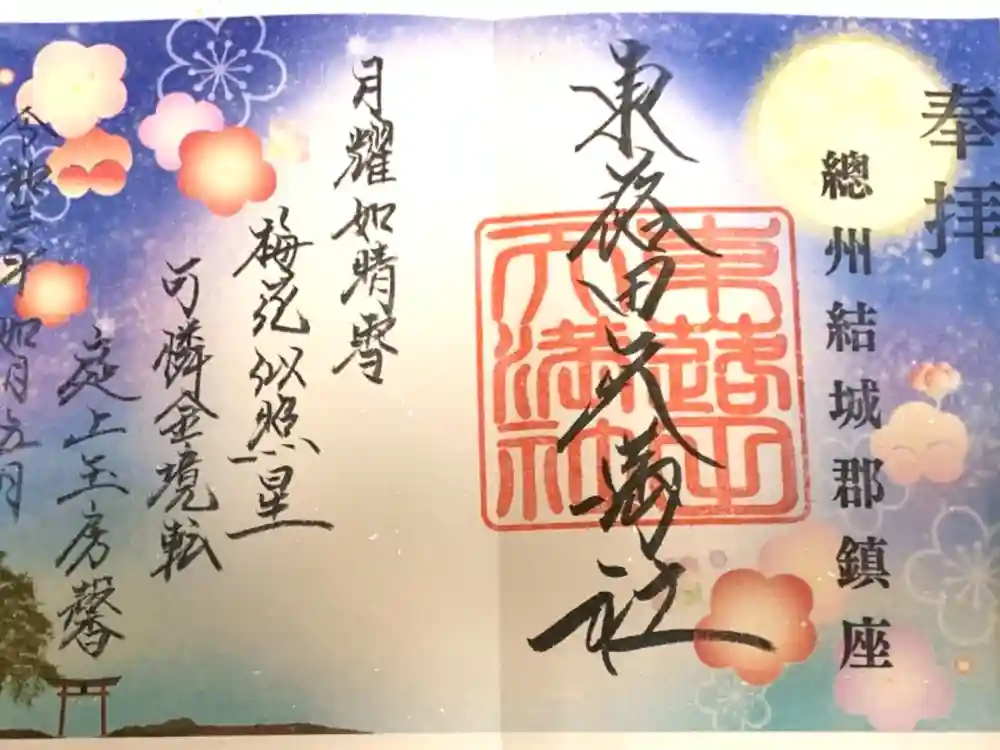 奉拝
總州結城郡鎮座
東蕗田天満社
東蕗田天満社
月耀如晴雪
梅花似照星
可憐金鏡転
庭上玉房馨
令和三年如月五月